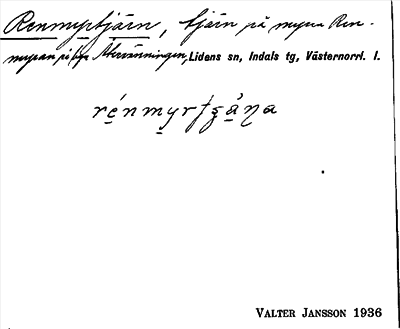 Renmyrtjärn, tjärn på myren Ren-
myran, på bys Återvänningen, Lidens sn, Indals tg, Västernorrl. l.
rénmyrtʂåɳa
VALTER JANSSON 1936